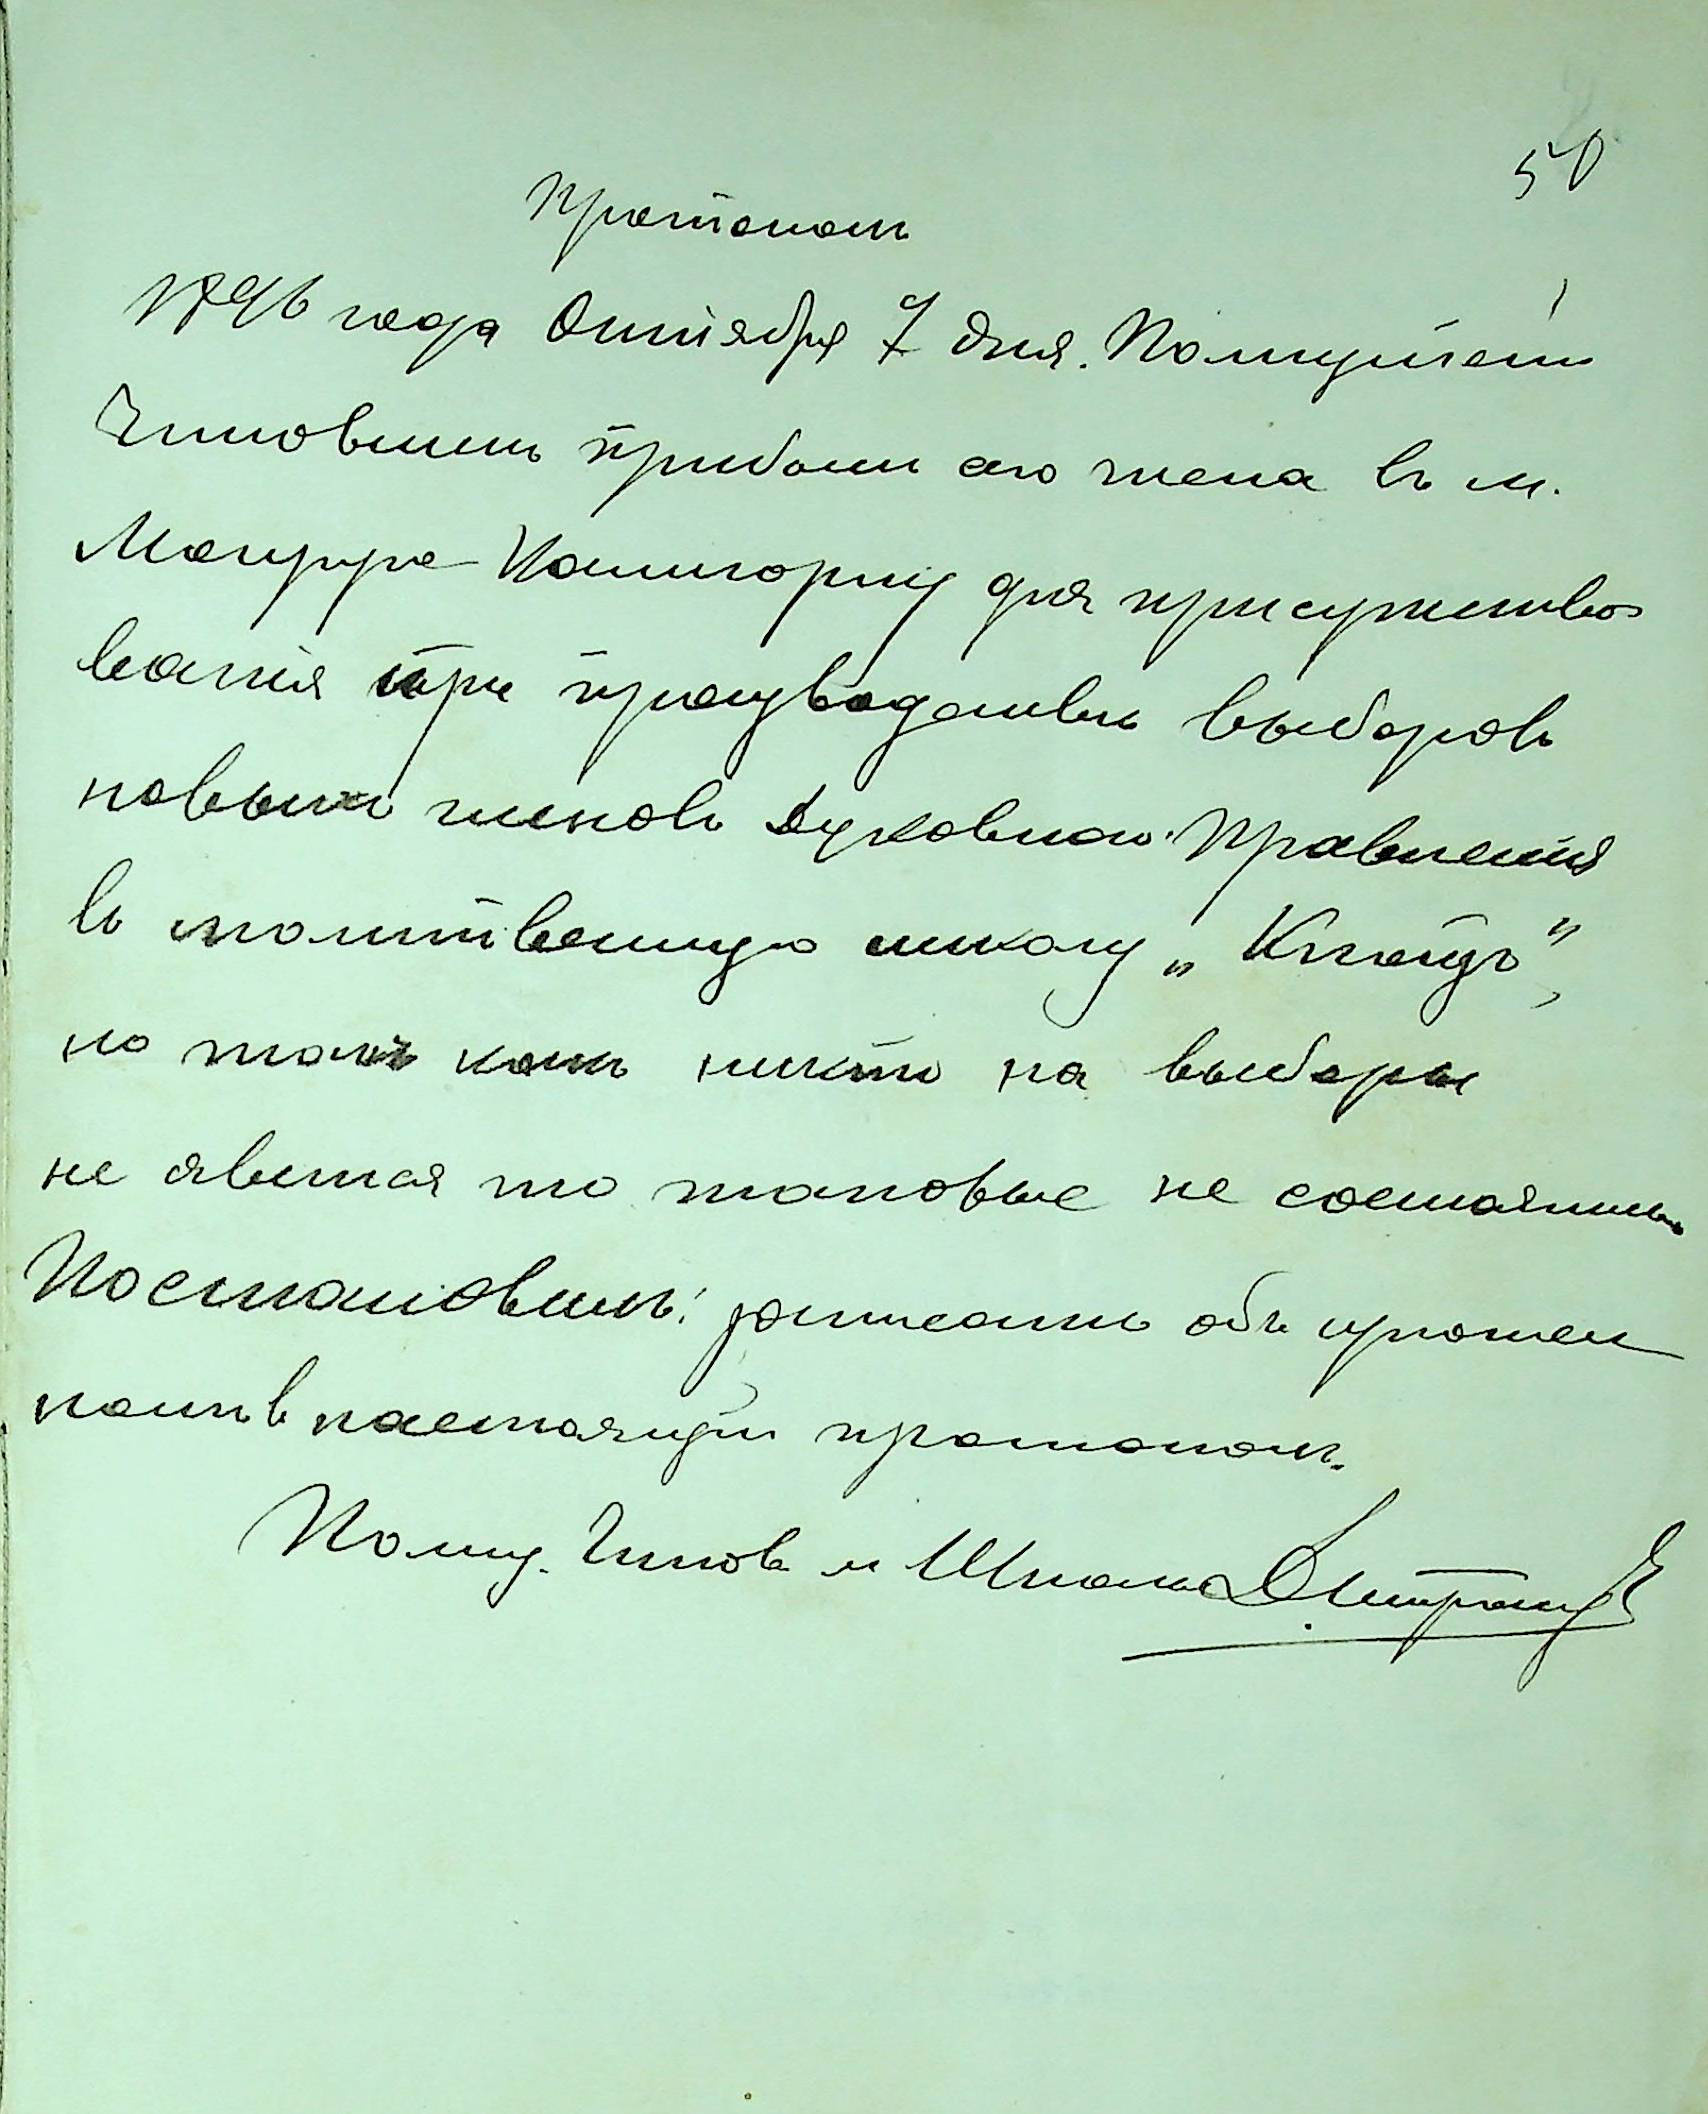 50
Протоколъ
1896 года Октября 7 дня. Полицейскій
Чиновникъ прибылъ сего числа въ м.
для присутство-
ванія при производствѣ выборовъ
новыхъ членовъ Духовнаго Правленія
въ молитвенную школу „Клаузъ“,
но такъ какъ никто на выборы
не явился то таковые не состоялись
Постановилъ: записать объ изложен
номъ в настоящій протоколъ.
Полиц. Чинов